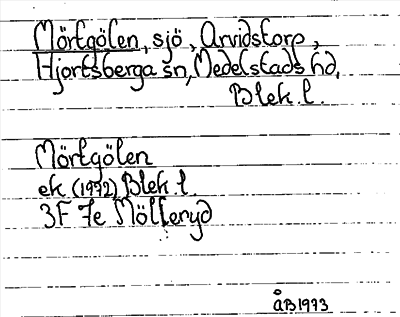 Mörtgölen, sjö, Arvidstorp,
Hjortsberga sn, Medelstads hd,
Blek. l.
Mörtgölen
ek (1972) Blek. l.
3F 7e Möllenyd
ÅB 1973